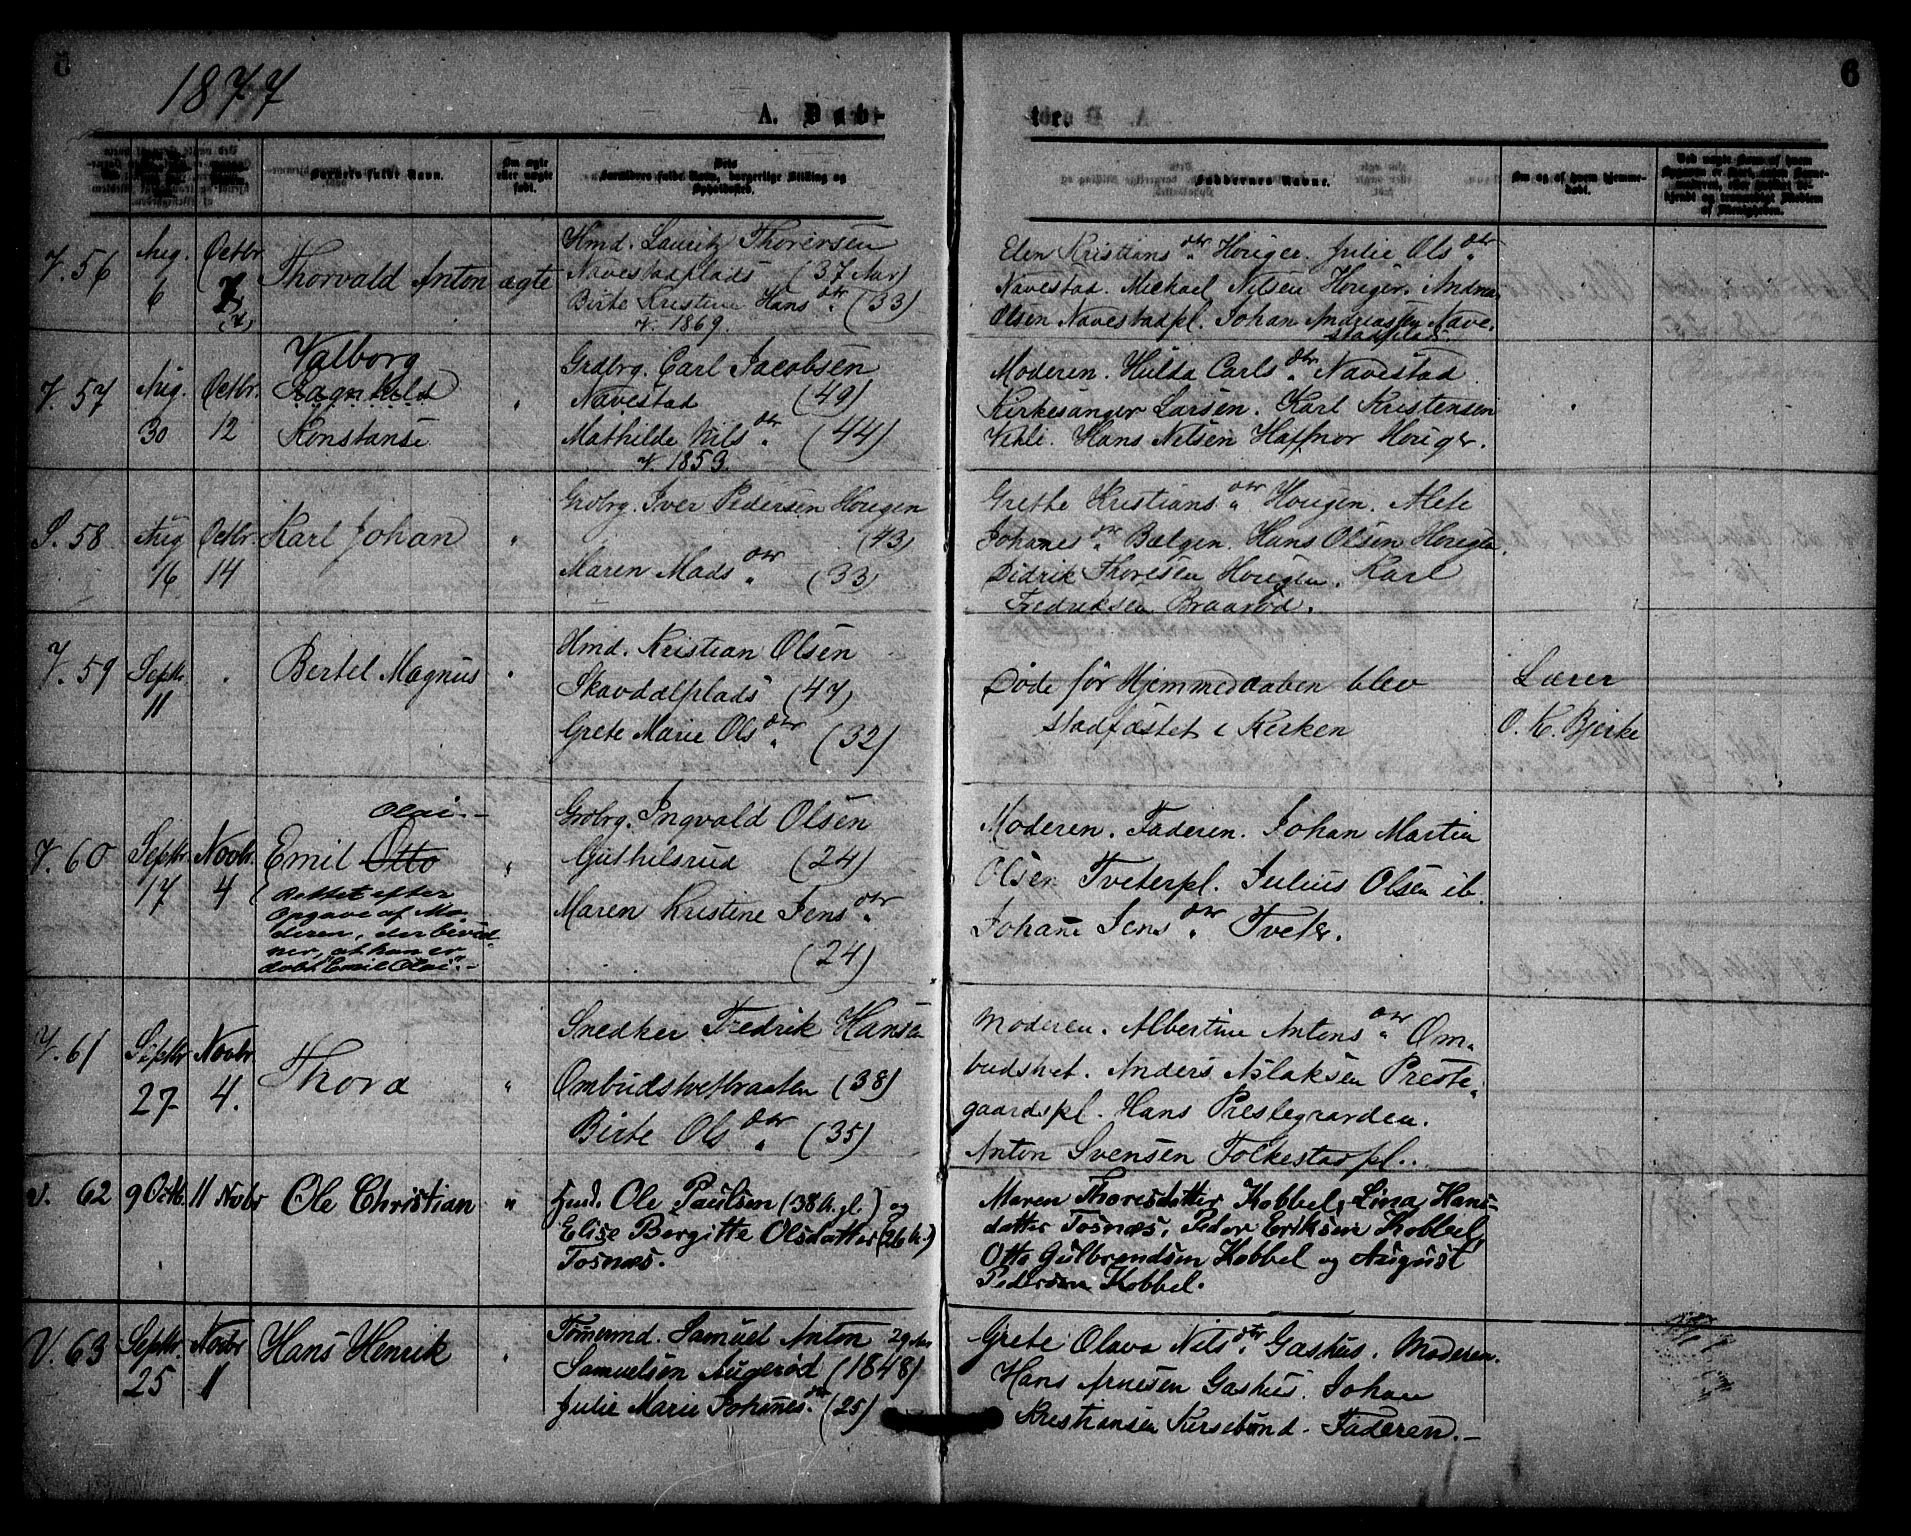 1877
6
A. Døb-
tte.
Barnets fulde Navn.
Om ægte eller uægte født.
Forældres fulde Navn, borgerlige Stilling og Opholdssted.
Faddernes Navne.
Om og af hvem hjemmedøbt.
V. 56
Aug. 6
Octbr. 7
Thorvald Anton
ægte
Hmd. Lauritz Thorersen
Navestadplads (37 Aar)
Birte Kristine Hans dtr. (33)
V. 1869.
Elen Kristians dtr. Houger. Julie Ols dtr.
Navestad. Mickael Nilsen Houger. Andreas
Olsen Navestadpl. Johan Andreassen Nave-
stadplads.
V. 57
Aug. 30
Octbr. 12
Valborg
Ragnhild
Konstanse
"
Grdbrg. Carl Jacobsen
Navestad (49)
Mathilde Nils dtr. (44)
V. 1859.
Moderen. Hulda Carls dtr. Navestad
Kirkesanger Larsen. Karl Kristensen
Vehli. Hans Nilsen Haffnor Houger.
S. 58
Aug 16
Octbr. 14
Karl Johan
"
Grdbrg. Iver Pedersen Hougen
(43)
Maren Mads dtr. (33)
Grethe Kristians dtr. Hougen. Alete
Johanes dtr. Bælgen. Hans Olsen Hougen.
Didrik Thoresen Hougen. Karl
Fredriksen Braarød.
V. 59
Septr. 11
Bertel Magnus
"
Hmd. Kristian Olsen
Skavdalplads (47)
Grete Marie Ols dtr. (32)
Døde før Hjemmedaaben blev
stadfæstet i Kirken
Lærer
O. K. Bjerke
V. 60
Septr. 17
Novbr. 4
Olai.-
Emil Otto
(Rettet efter
Opgave af Mo-
deren, der bevid-
ner, at han er
døbt "Emil Olai".-
"
Grdbrg. Ingvald Olsen
Guthilsrud (24)
Maren Kristine Jens dtr.
(24)
Moderen. Faderen. Johan Martin
Olsen Tveterpl. Julius Olsen ib.
Johane Jens dtr. Tveter.
V. 61
Septbr. 27
Novbr. 4.
Thora
"
Snedker Fredrik Hansen
Ombudstvetbraaten (38)
Birte Ols dtr. (35)
Moderen. Albertine Antons dtr. Om-
budstvet. Anders Aslaksen Preste-
gaardspl. Hans Prestegaarden.
Anton Svensen Folkestadpl.
V. 62
9 Octb.
11 Novbr
Ole Christian
"
Ole Paulsen (38 A. gl.) og
Elise Bergitte Olsdatter (26 A.)
Tosnæs.
Maren Thoresdatter Kobbel, Lina Hans-
datter Tosnæs, Peder Eriksen Kobbel,
Otto Gulbrendsen Kobbel og August
Pedersen Kobbel.
V. 63
Septbr. 25
Novbr 11
Hans Henrik
"
Tømermd. Samuel Anton 29 Aar
Samuelsen Augerød (1848)
Julie Marie Johanes dtr. (25)
Grete Olava Nils dtr. Gashus. Moderen.
Hans Arnesen Gashus. Johan
Kristiansen Kirsebond. Faderen.-